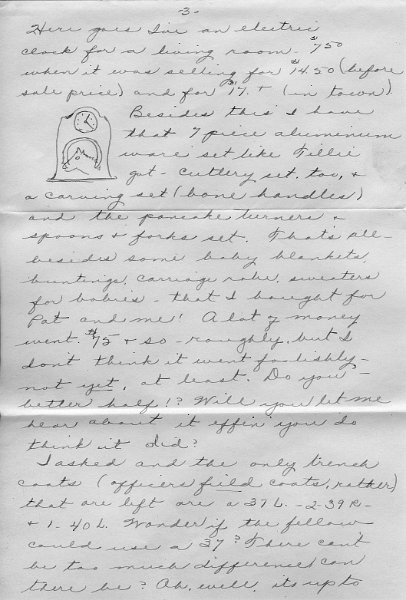 3-
Here goes I'm an electric
clock for a living room - $7.50
when it was selling for $14.50 (before
sale price) and for 17. + (in town)
Besides this I have
that 7 piece aluminum
ware set like Tillie
got - cutlery set, too, &
a carving set (bone handles)
and the pancake turners &
spoons & forks set. That's all -
besides some baby blankets,
buntings, carriage robe, sweaters
for babies - that I bought for
Pat and me! A lot of money
went. $75 & so - roughly, but I
don't think it went foolishly -
not yet, at least. Do you -
better half!? Will you let me
hear about it effin you do
think it did?
I asked and the only trench
coats (officers field coats, rather)
that are left are a 37 L. - 2 - 39 R -
& 1 - 40 L. Wonder if the fellow
could use a 37? There can't
be too much difference, can
there be? Oh, well, its up to